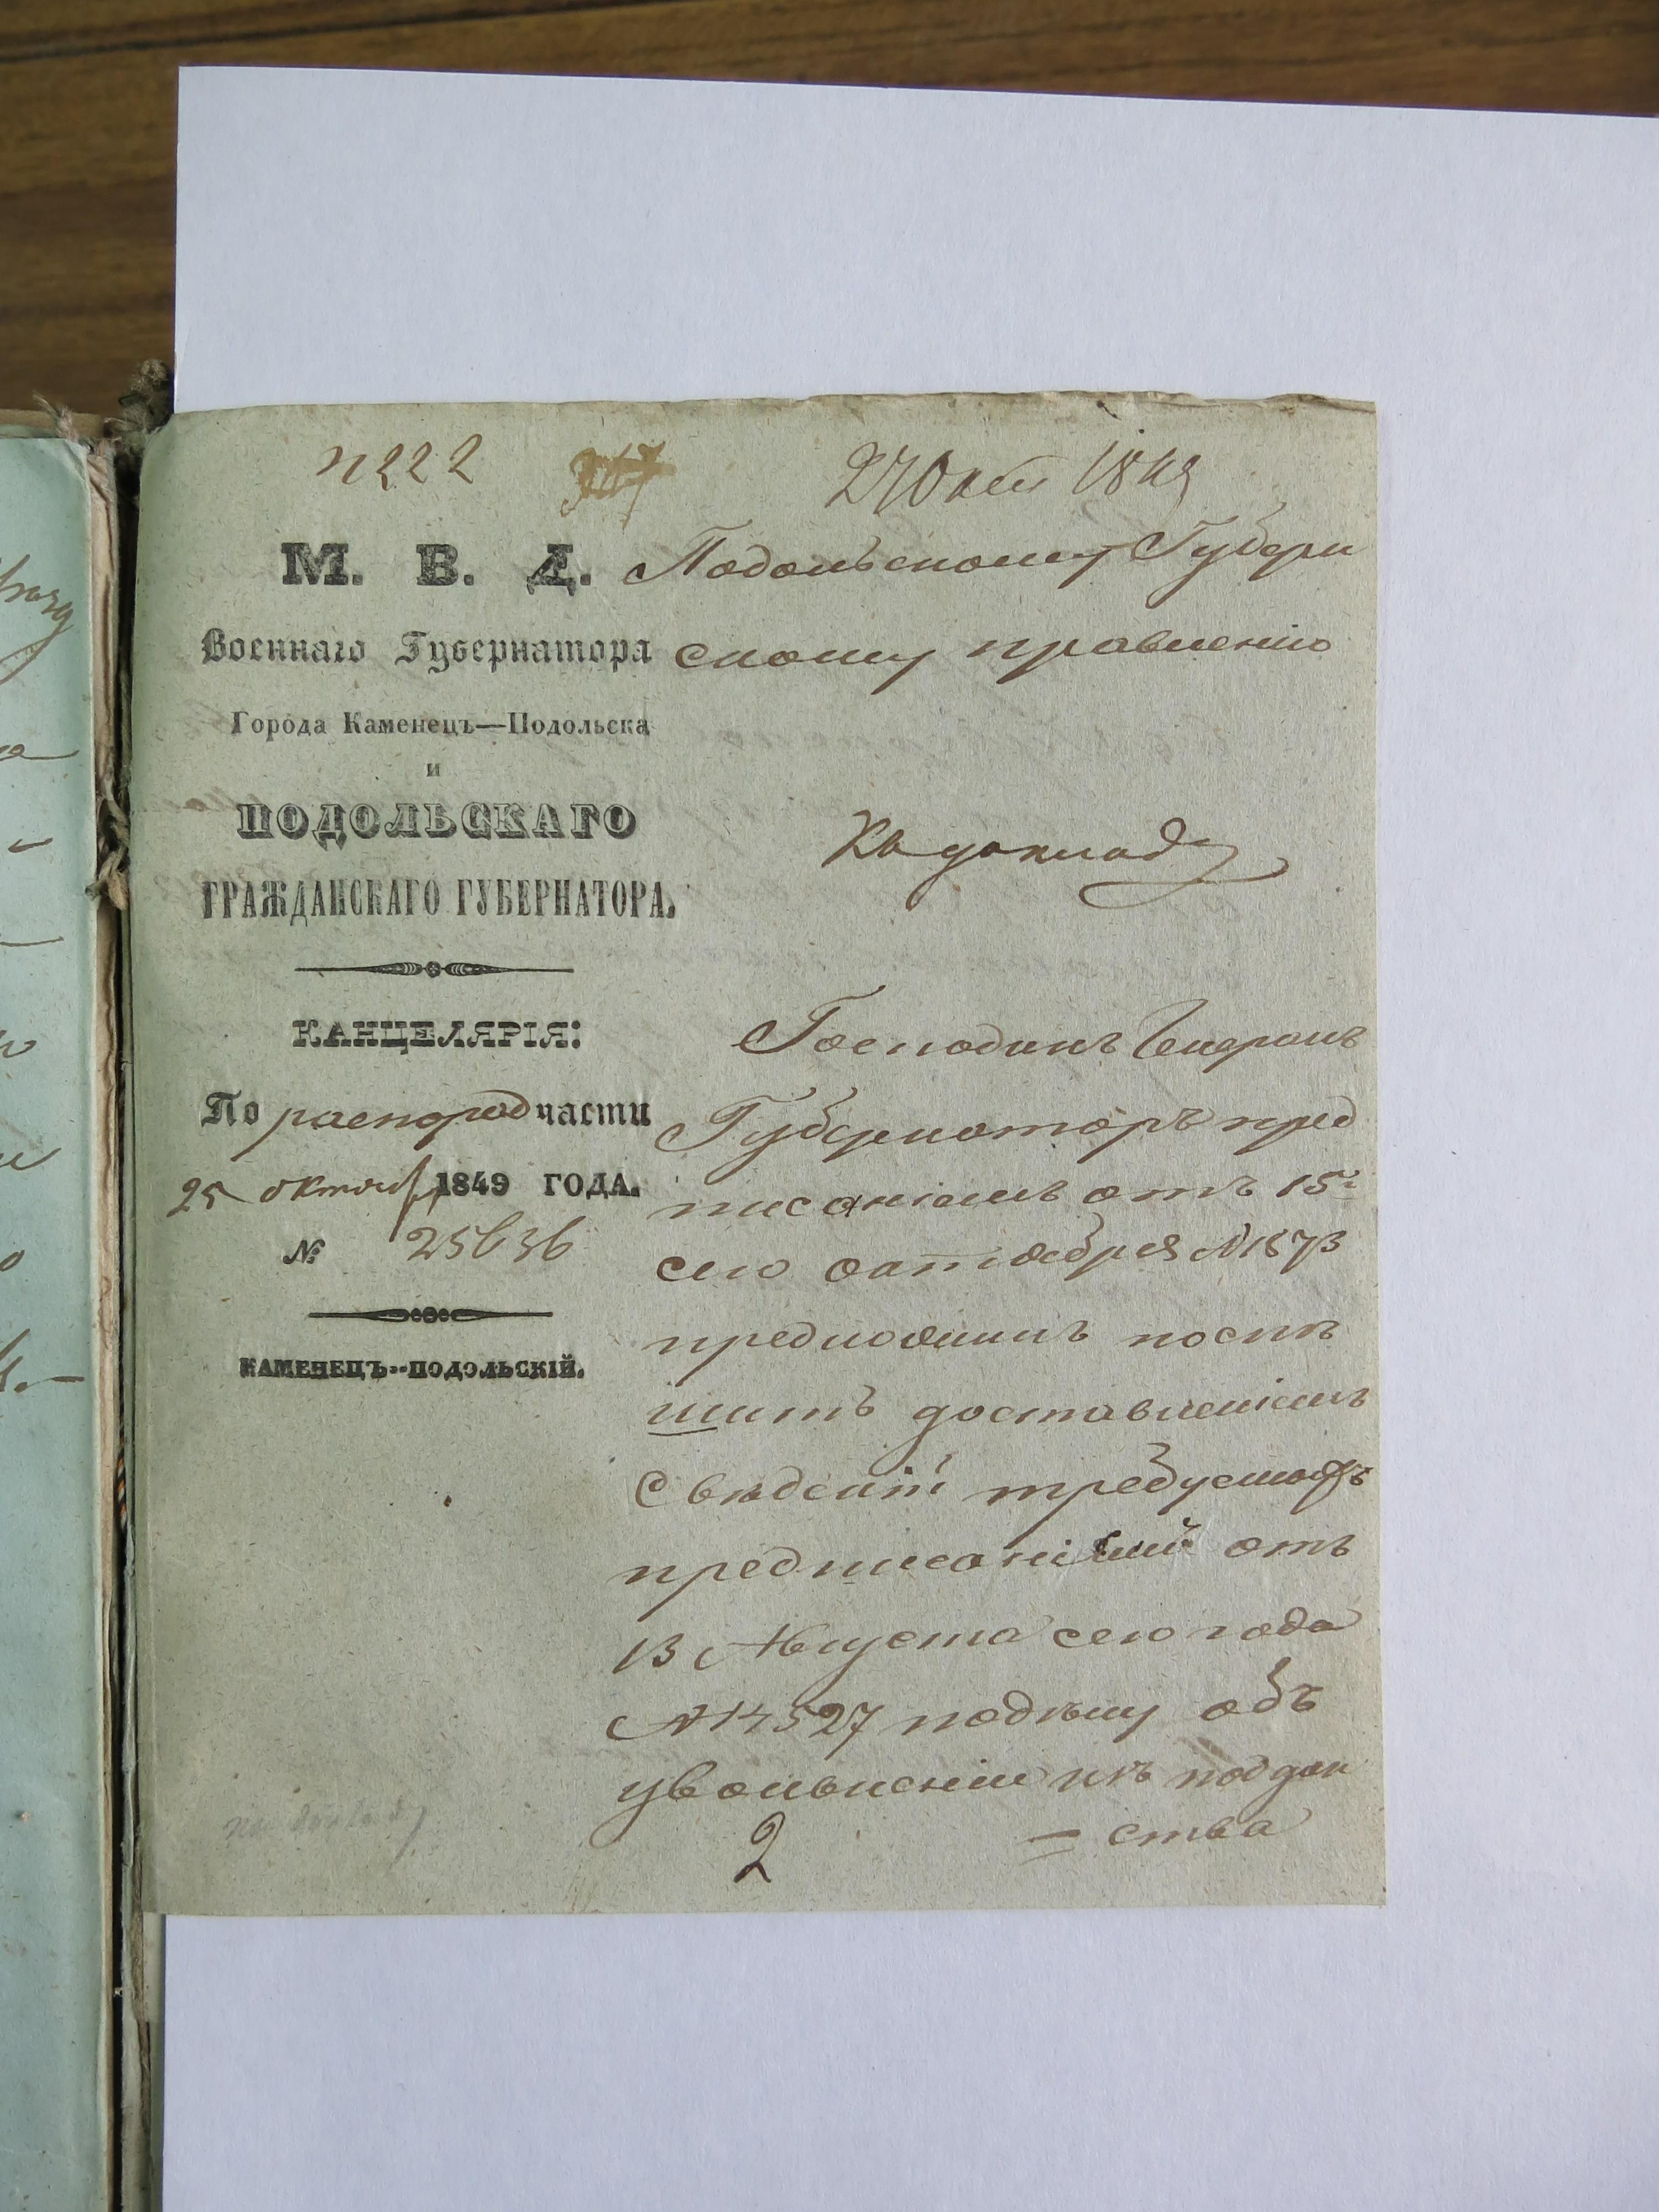 п 222
27 Окт 1849
М. В. Д.
Военнаго Губернатора
Города Каменецъ—Подольска
и
ПОДОЛЬСКАГО
ГРАЖДАНСКАГО ГУБЕРНАТОРА.
КАНЦЕЛЯРІЯ:
По распоряд части
25 октября 1849 ГОДА.
№ 25636
КАМЕНЕЦЪ--ПОДОЛЬСКІЙ.
Подольскому Губерн
скому правленію
Къ докладу
Господинъ Генералъ
Губернаторъ пред
писаніемъ отъ 15
сего октября № 1873
предложилъ поспѣ
шить доставленіемъ
свѣденій требуемыхъ
предписаніемъ отъ
13 Августа сего года
№ 14527 объ
увольненіи изъ поддан
= ства
2